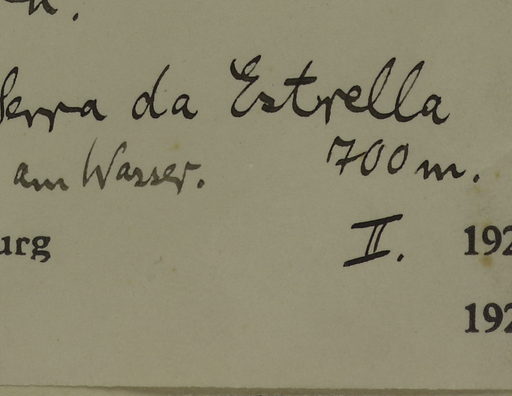 Serra da Estrella
am Wasser. 700 m.
urg II. 192
192